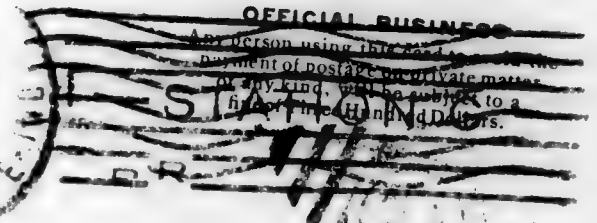 OFFICIAL BUSINESS
Any person using this card to avoid the
payment of postage on private matter
of any kind, will be subject to a
fine of Three Hundred Dollars.
STATION G